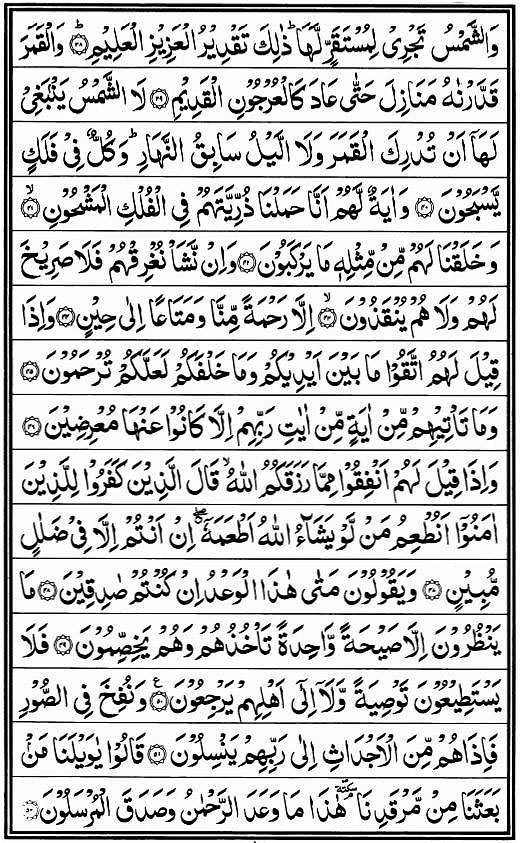 وَالشَّمْسُ تَجْرِىْ لِمُسْتَقَرٍّ لَّهَا ؕ ذٰلِكَ تَقْدِيْرُ الْعَزِيْزِ الْعَلِيْمِ ؕ ۝۳۸ وَالْقَمَرَ
قَدَّرْنٰهُ مَنَازِلَ حَتّٰى عَادَ كَالْعُرْجُوْنِ الْقَدِيْمِ ۝۳۹ لَا الشَّمْسُ يَنْۢبَغِىْ
لَهَاۤ اَنْ تُدْرِكَ الْقَمَرَ وَلَا الَّيْلُ سَابِقُ النَّهَارِ ؕ وَكُلٌّ فِىْ فَلَكٍ
يَّسْبَحُوْنَ ۝۴۰ وَاٰيَةٌ لَّهُمْ اَنَّا حَمَلْنَا ذُرِّيَّتَهُمْ فِى الْفُلْكِ الْمَشْحُوْنِ ۙ ۝۴۱
وَخَلَقْنَا لَهُمْ مِّنْ مِّثْلِهٖ مَا يَرْكَبُوْنَ ۝۴۲ وَاِنْ نَّشَاْ نُغْرِقْهُمْ فَلَا صَرِيْخَ
لَهُمْ وَلَا هُمْ يُنْقَذُوْنَ ۙ ۝۴۳ اِلَّا رَحْمَةً مِّنَّا وَمَتَاعًا اِلٰى حِيْنٍ ۝۴۴ وَاِذَا
قِيْلَ لَهُمُ اتَّقُوْا مَا بَيْنَ اَيْدِيْكُمْ وَمَا خَلْفَكُمْ لَعَلَّكُمْ تُرْحَمُوْنَ ۝۴۵
وَمَا تَاْتِيْهِمْ مِّنْ اٰيَةٍ مِّنْ اٰيٰتِ رَبِّهِمْ اِلَّا كَانُوْا عَنْهَا مُعْرِضِيْنَ ۝۴۶
وَاِذَا قِيْلَ لَهُمْ اَنْفِقُوْا مِمَّا رَزَقَكُمُ اللّٰهُ ۙ قَالَ الَّذِيْنَ كَفَرُوْا لِلَّذِيْنَ
اٰمَنُوْۤا اَنُطْعِمُ مَنْ لَّوْ يَشَآءُ اللّٰهُ اَطْعَمَهٗۤ ۖ اِنْ اَنْتُمْ اِلَّا فِىْ ضَلٰلٍ
مُّبِيْنٍ ۝۴۷ وَيَقُوْلُوْنَ مَتٰى هٰذَا الْوَعْدُ اِنْ كُنْتُمْ صٰدِقِيْنَ ۝۴۸ مَا
يَنْظُرُوْنَ اِلَّا صَيْحَةً وَّاحِدَةً تَاْخُذُهُمْ وَهُمْ يَخِصِّمُوْنَ ۝۴۹ فَلَا
يَسْتَطِيْعُوْنَ تَوْصِيَةً وَّلَاۤ اِلٰٓى اَهْلِهِمْ يَرْجِعُوْنَ ۝۵۰ وَنُفِخَ فِى الصُّوْرِ
فَاِذَا هُمْ مِّنَ الْاَجْدَاثِ اِلٰى رَبِّهِمْ يَنْسِلُوْنَ ۝۵۱ قَالُوْا يٰوَيْلَنَا مَنْۢ
بَعَثَنَا مِنْ مَّرْقَدِنَا هٰذَا مَا وَعَدَ الرَّحْمٰنُ وَصَدَقَ الْمُرْسَلُوْنَ ۝۵۲